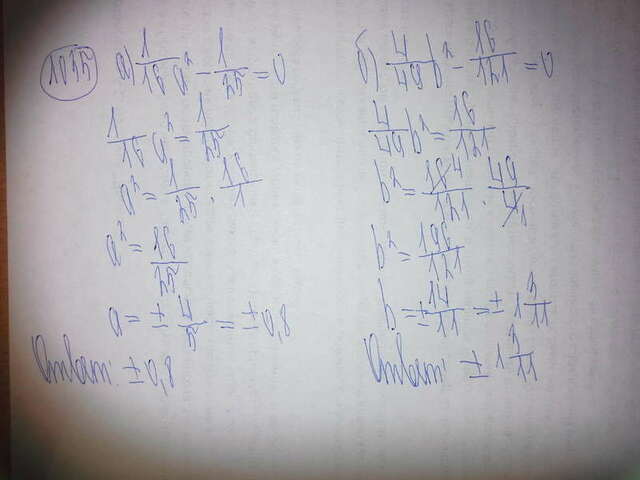 1035
а) 1/16 a² - 1/25 = 0
1/16 a² = 1/25
a² = 1/25 · 16/1
a² = 16/25
a = ± 4/5 = ± 0,8
Ответ: ± 0,8
б) 4/49 b² - 16/121 = 0
4/49 b² = 16/121
b² = 16 4/121 · 49/4 1
b² = 196/121
b = ± 14/11 = ± 1 3/11
Ответ: ± 1 3/11